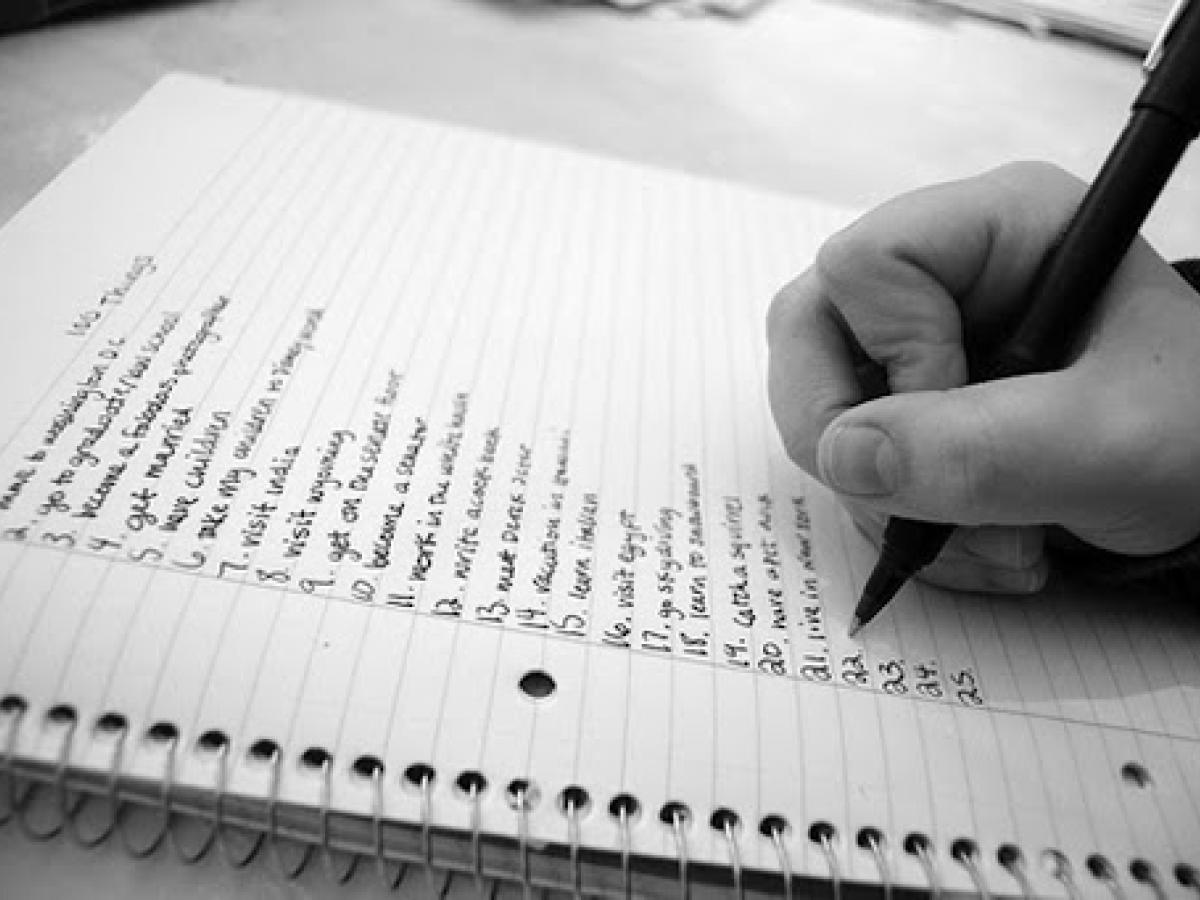 100 Things
move to washington D.C
2. go to graduate/law school
3. become a fabulous photographer
4. get married
5. have children
6. take my children to Disney world
7. visit India
8. visit wyoming
9. get on the senate floor
10. become a senator
11. work in the white house
12. write a cook book
13. meet Derek Jeter
14. vacation in
15. learn italian
16. visit Egypt
17. go skydiving
18. learn to
19. catch a squirrel
20. have a pet
21. live in new york
22.
23.
24.
25.